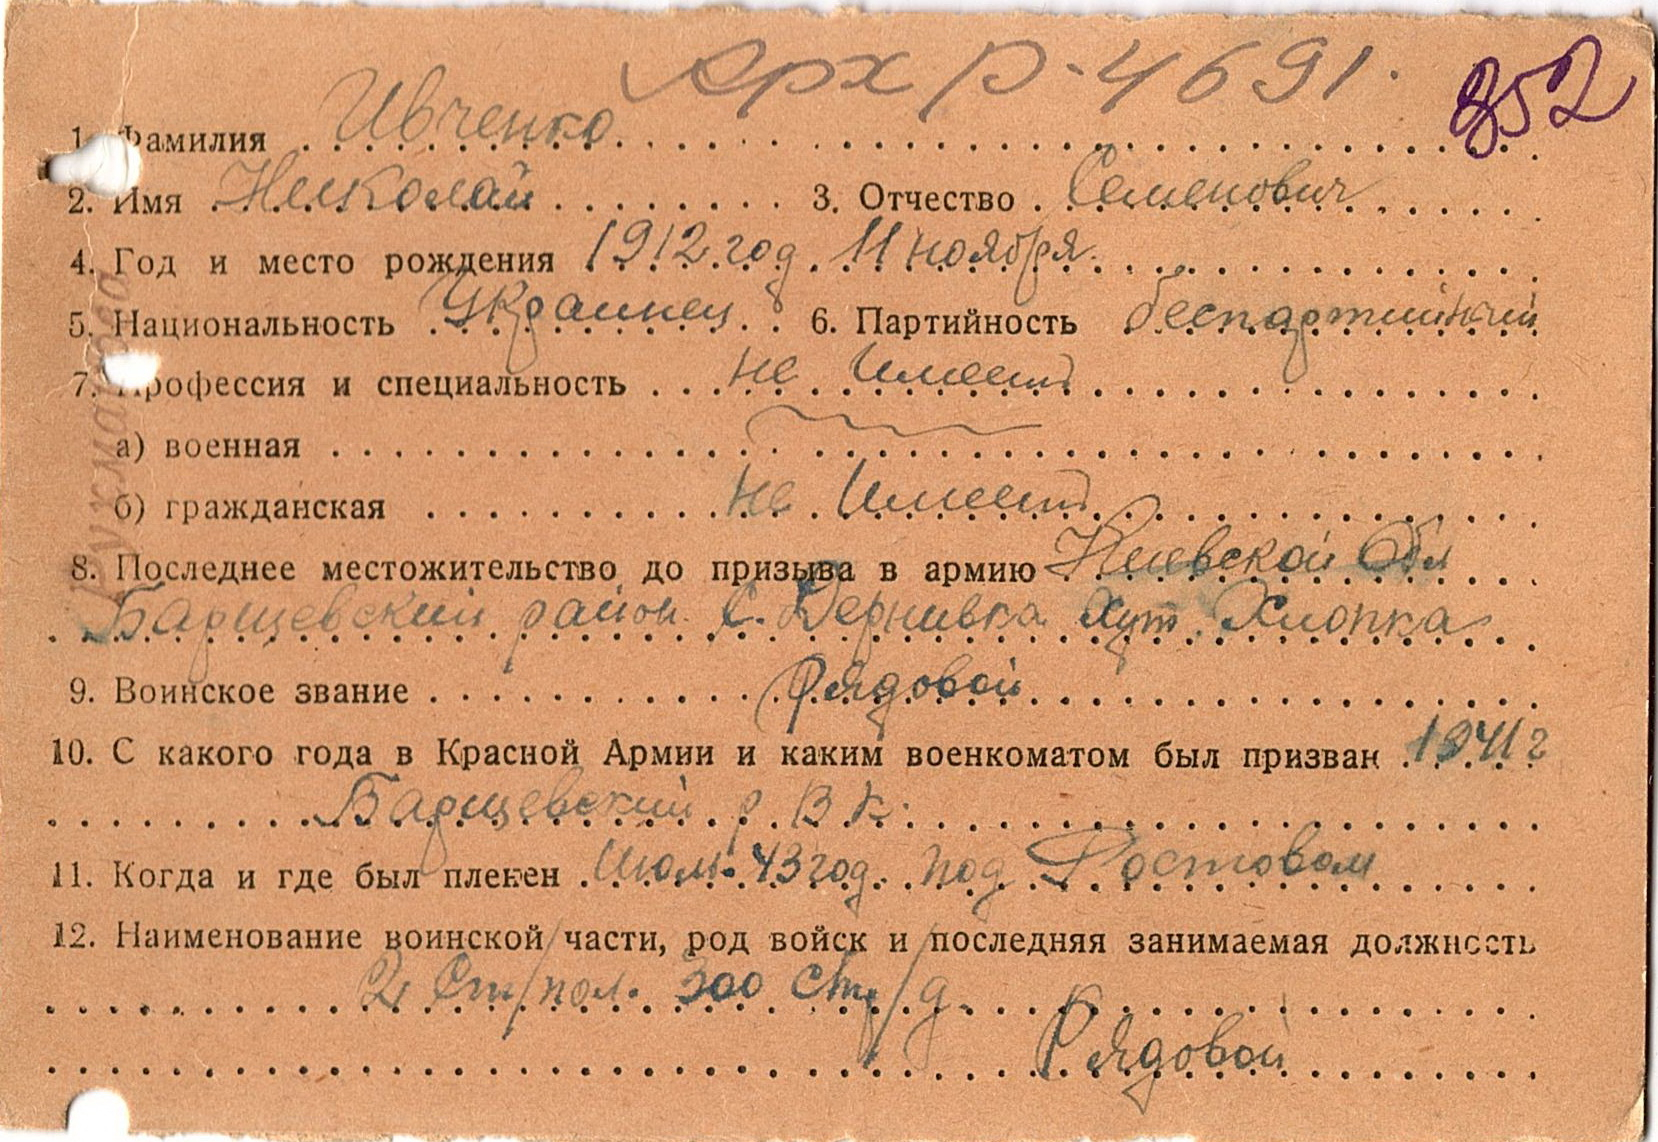 Арх Р-4691.
852
1. Фамилия Ивченко
2. Имя Николай 3. Отчество Семенович
4. Год и место рождения 1912 год 11 ноября.
5. Национальность Украинец 6. Партийность беспартийный
7. Профессия и специальность не имеет
а) военная
б) гражданская не имеет
8. Последнее местожительство до призыва в армию Киевской Обл
Барщевский район. С. Дернивка Хут. Хлопка
9. Воинское звание Рядовой
10. С какого года в Красной Армии и каким военкоматом был призван 1941 г
Барщевский р. В К.
11. Когда и где был пленен 43 год. под Ростовом
12. Наименование воинской части, род войск и последняя занимаемая должность
2 Ст/пол. 300 Ст/д.
Рядовой